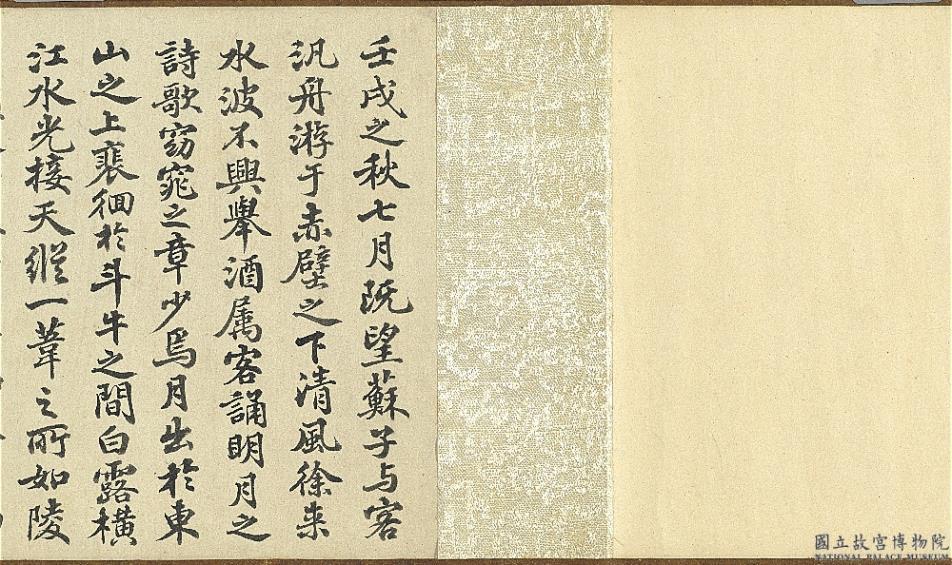 壬戌之秋七月既望蘇子与客
汎舟游于赤壁之下清風徐来
水波不興舉酒属客誦明月之
詩歌窈窕之章少焉月出於東
山之上裴佪於斗牛之間白露橫
江水光接天縱一葦之所如陵
國立故宮博物院
NATIONAL PALACE MUSEUM